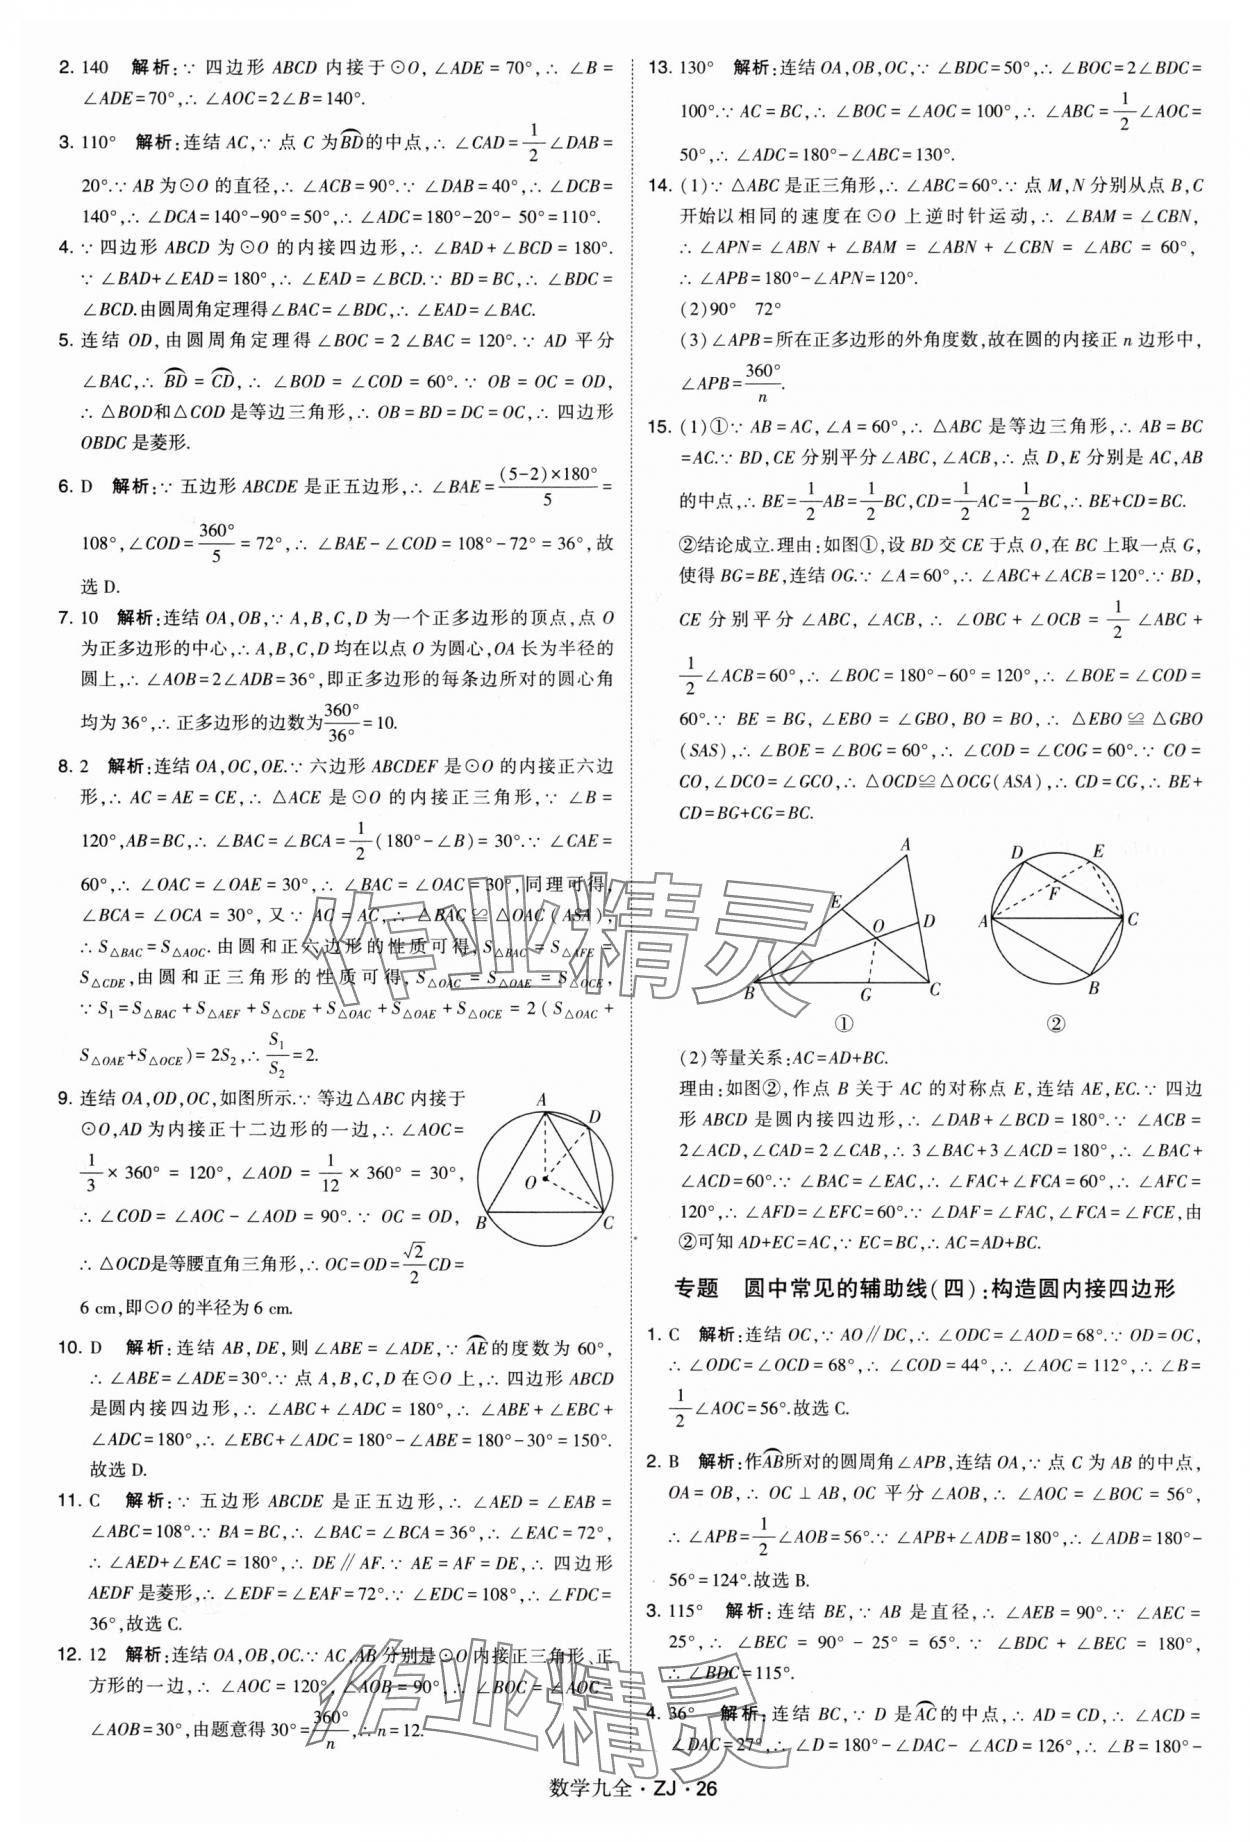 2. 140　解析:∵ 四边形 ABCD 内接于⊙O, ∠ADE = 70°,∴ ∠B =
∠ADE=70°,∴ ∠AOC=2∠B=140°.
3. 110°　解析:连结 AC,∵ 点 C 为BD的中点,∴ ∠CAD=1/2∠DAB=
20°.∵ AB 为⊙O 的直径,∴ ∠ACB=90°.∵ ∠DAB=40°,∴ ∠DCB=
140°,∴ ∠DCA=140°-90°=50°,∴ ∠ADC=180°-20°- 50°=110°.
4. ∵ 四边形 ABCD 为⊙O 的内接四边形,∴ ∠BAD+∠BCD=180°.
∵ ∠BAD+∠EAD=180°,∴ ∠EAD=∠BCD.∵ BD=BC,∴ ∠BDC=
∠BCD.由圆周角定理得∠BAC=∠BDC,∴ ∠EAD=∠BAC.
5. 连结 OD,由圆周角定理得∠BOC=2∠BAC=120°.∵ AD 平分
∠BAC,∴ BD = CD,∴ ∠BOD = ∠COD = 60°.∵ OB = OC = OD,
∴ △BOD和△COD 是等边三角形,∴ OB=BD=DC=OC,∴ 四边形
OBDC 是菱形.
6. D　解析:∵ 五边形 ABCDE 是正五边形,∴ ∠BAE=(5-2)×180°/5=
108°,∠COD=360°/5=72°,∴ ∠BAE-∠COD=108°-72°=36°,故
选 D.
7. 10　解析:连结 OA,OB,∵ A,B,C,D 为一个正多边形的顶点,点 O
为正多边形的中心,∴ A,B,C,D 均在以点 O 为圆心,OA 长为半径的
圆上,∴ ∠AOB=2∠ADB=36°,即正多边形的每条边所对的圆心角
均为 36°,∴ 正多边形的边数为360°/36°=10.
8. 2　解析:连结 OA,OC,OE.∵ 六边形 ABCDEF 是⊙O 的内接正六边
形,∴ AC=AE=CE,∴ △ACE 是⊙O 的内接正三角形,∵ ∠B=
120°,AB=BC,∴ ∠BAC=∠BCA=1/2(180°-∠B)=30°.∵ ∠CAE=
60°,∴ ∠OAC=∠OAE=30°,∴ ∠BAC=∠OAC=30°,同理可得,
∠BCA=∠OCA=30°,又∵ AC=AC,∴ △BAC≌△OAC(ASA),
∴ S△BAC=S△AOC.由圆和正六边形的性质可得,S△BAC=S△AFE=
S△CDE,由圆和正三角形的性质可得,S△OAC=S△OAE=S△OCE,
∵ S1=S△BAC+S△AEF+S△CDE+S△OAC+S△OAE+S△OCE=2(S△OAC+
S△OAE+S△OCE)=2S2,∴ S1/S2=2.
9. 连结 OA,OD,OC,如图所示.∵ 等边△ABC 内接于
⊙O,AD 为内接正十二边形的一边,∴ ∠AOC=
1/3×360°=120°,∠AOD=1/12×360°=30°,
∴ ∠COD=∠AOC-∠AOD=90°.∵ OC=OD,
∴ △OCD是等腰直角三角形,∴ OC=OD=√2/2CD=
6 cm,即⊙O 的半径为 6 cm.
A
D
O
B
C
10. D　解析:连结 AB,DE,则∠ABE=∠ADE,∵ AE的度数为 60°,
∴ ∠ABE=∠ADE=30°.∵ 点 A,B,C,D 在⊙O 上,∴ 四边形 ABCD
是圆内接四边形,∴ ∠ABC+∠ADC=180°,∴ ∠ABE+∠EBC+
∠ADC=180°,∴ ∠EBC+∠ADC=180°-∠ABE=180°-30°=150°.
故选 D.
11. C　解析:∵ 五边形 ABCDE 是正五边形,∴ ∠AED=∠EAB=
∠ABC=108°.∵ BA=BC,∴ ∠BAC=∠BCA=36°,∴ ∠EAC=72°,
∴ ∠AED+∠EAC=180°,∴ DE∥AF.∵ AE=AF=DE,∴ 四边形
AEDF 是菱形,∴ ∠EDF=∠EAF=72°.∵ ∠EDC=108°,∴ ∠FDC=
36°,故选 C.
12. 12　解析:连结 OA,OB,OC.∵ AC,AB 分别是⊙O 内接正三角形、正
方形的一边,∴ ∠AOC=120°,∠AOB=90°,∴ ∠BOC=∠AOC-
∠AOB=30°,由题意得 30°=360°/n,∴ n=12.
13. 130°　解析:连结 OA,OB,OC,∵ ∠BDC=50°,∴ ∠BOC=2∠BDC=
100°.∵ AC=BC,∴ ∠BOC=∠AOC=100°,∴ ∠ABC=1/2∠AOC=
50°,∴ ∠ADC=180°-∠ABC=130°.
14. (1)∵ △ABC 是正三角形,∴ ∠ABC=60°.∵ 点 M,N 分别从点 B,C
开始以相同的速度在⊙O 上逆时针运动,∴ ∠BAM=∠CBN,
∴ ∠APN=∠ABN+∠BAM=∠ABN+∠CBN=∠ABC=60°,
∴ ∠APB=180°-∠APN=120°.
(2)90°　72°
(3)∠APB=所在正多边形的外角度数,故在圆的内接正 n 边形中,
∠APB=360°/n.
15. (1)①∵ AB=AC,∠A=60°,∴ △ABC 是等边三角形,∴ AB=BC
=AC.∵ BD,CE 分别平分∠ABC,∠ACB,∴ 点 D,E 分别是 AC,AB
的中点,∴ BE=1/2AB=1/2BC,CD=1/2AC=1/2BC,∴ BE+CD=BC.
②结论成立.理由:如图①,设 BD 交 CE 于点 O,在 BC 上取一点 G,
使得 BG=BE,连结 OG.∵ ∠A=60°,∴ ∠ABC+∠ACB=120°.∵ BD,
CE 分别平分∠ABC,∠ACB,∴ ∠OBC+∠OCB=1/2∠ABC+
1/2∠ACB=60°,∴ ∠BOC=180°-60°=120°,∴ ∠BOE=∠COD=
60°.∵ BE=BG,∠EBO=∠GBO,BO=BO,∴ △EBO≌△GBO
(SAS),∴ ∠BOE=∠BOG=60°,∴ ∠COD=∠COG=60°.∵ CO=
CO,∠DCO=∠GCO,∴ △OCD≌△OCG(ASA),∴ CD=CG,∴ BE+
CD=BG+CG=BC.
A
E
O
D
B
G
C
①
D
E
F
A
C
B
②
(2)等量关系:AC=AD+BC.
理由:如图②,作点 B 关于 AC 的对称点 E,连结 AE,EC.∵ 四边
形 ABCD 是圆内接四边形,∴ ∠DAB+∠BCD=180°.∵ ∠ACB=
2∠ACD,∠CAD=2∠CAB,∴ 3∠BAC+3∠ACD=180°,∴ ∠BAC+
∠ACD=60°.∵ ∠BAC=∠EAC,∴ ∠FAC+∠FCA=60°,∴ ∠AFC=
120°,∴ ∠AFD=∠EFC=60°.∵ ∠DAF=∠FAC,∠FCA=∠FCE,由
②可知 AD+EC=AC,∵ EC=BC,∴ AC=AD+BC.
专题　圆中常见的辅助线(四):构造圆内接四边形
1. C　解析:连结 OC,∵ AO∥DC,∴ ∠ODC=∠AOD=68°.∵ OD=OC,
∴ ∠ODC=∠OCD=68°,∴ ∠COD=44°,∴ ∠AOC=112°,∴ ∠B=
1/2∠AOC=56°.故选 C.
2. B　解析:作AB所对的圆周角∠APB,连结 OA,∵ 点 C 为 AB 的中点,
OA=OB,∴ OC⊥AB,OC 平分∠AOB,∴ ∠AOC=∠BOC=56°,
∴ ∠APB=1/2∠AOB=56°.∵ ∠APB+∠ADB=180°,∴ ∠ADB=180°-
56°=124°.故选 B.
3. 115°　解析:连结 BE,∵ AB 是直径,∴ ∠AEB=90°.∵ ∠AEC=
25°,∴ ∠BEC=90°-25°=65°.∵ ∠BDC+∠BEC=180°,
∴ ∠BDC=115°.
4. 36°　解析:连结 BC,∵ D 是AC的中点,∴ AD=CD,∴ ∠ACD=
∠DAC=27°,∴ ∠D=180°-∠DAC-∠ACD=126°,∴ ∠B=180°-
作业精灵
作业精灵
数学九全·ZJ·26